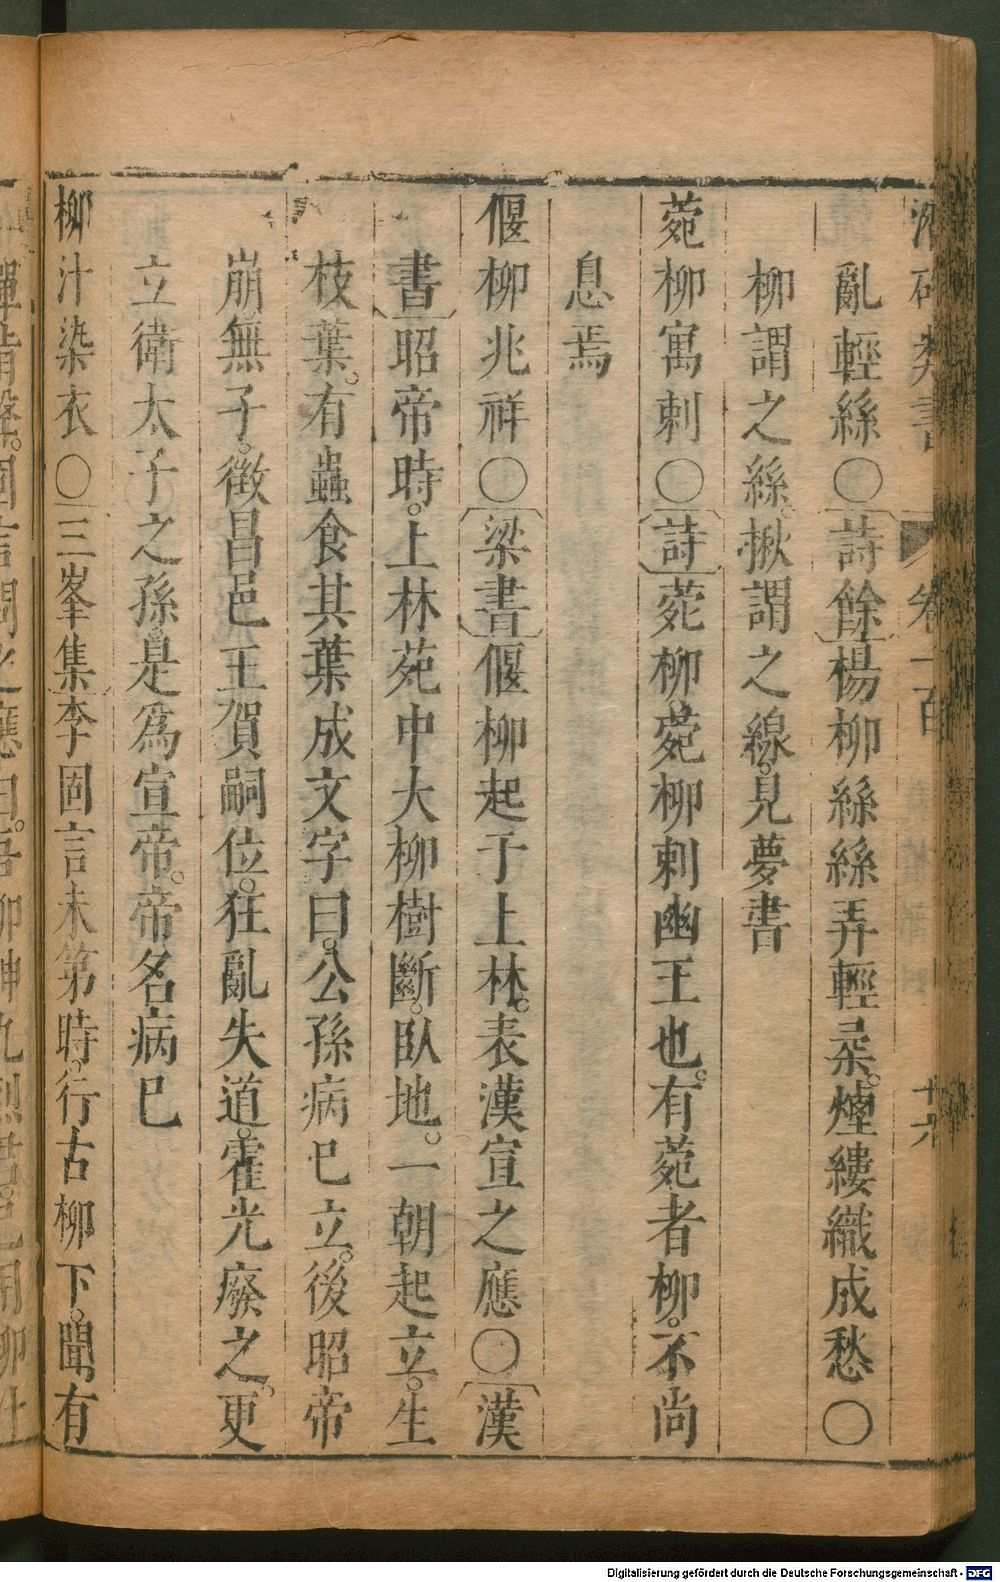 卷一百 十六
亂輕絲〇詩餘楊柳絲絲弄輕柔。煙縷織成愁〇
柳謂之絲。揪謂之線。見夢書
菀柳寓刺〇詩菀柳菀柳刺幽王也。有菀者柳。不尚
息焉
偃柳兆祥〇梁書偃柳起于上林。表漢宣之應〇漢
書昭帝時。上林苑中大柳樹斷。臥地。一朝起立。生
枝葉。有蟲食其葉成文字曰。公孫病已立。後昭帝
崩。無子。徵昌邑王賀嗣位。狂亂失道。霍光廢之。更
立衛太子之孫。是爲宣帝。帝名病已
柳汁染衣〇三峯集李固言未第時。行古柳下。聞有
彈指聲。固言問之應曰。吾柳神九烈君已用柳汁
Digitalisierung gefördert durch die Deutsche Forschungsgemeinschaft - DFG